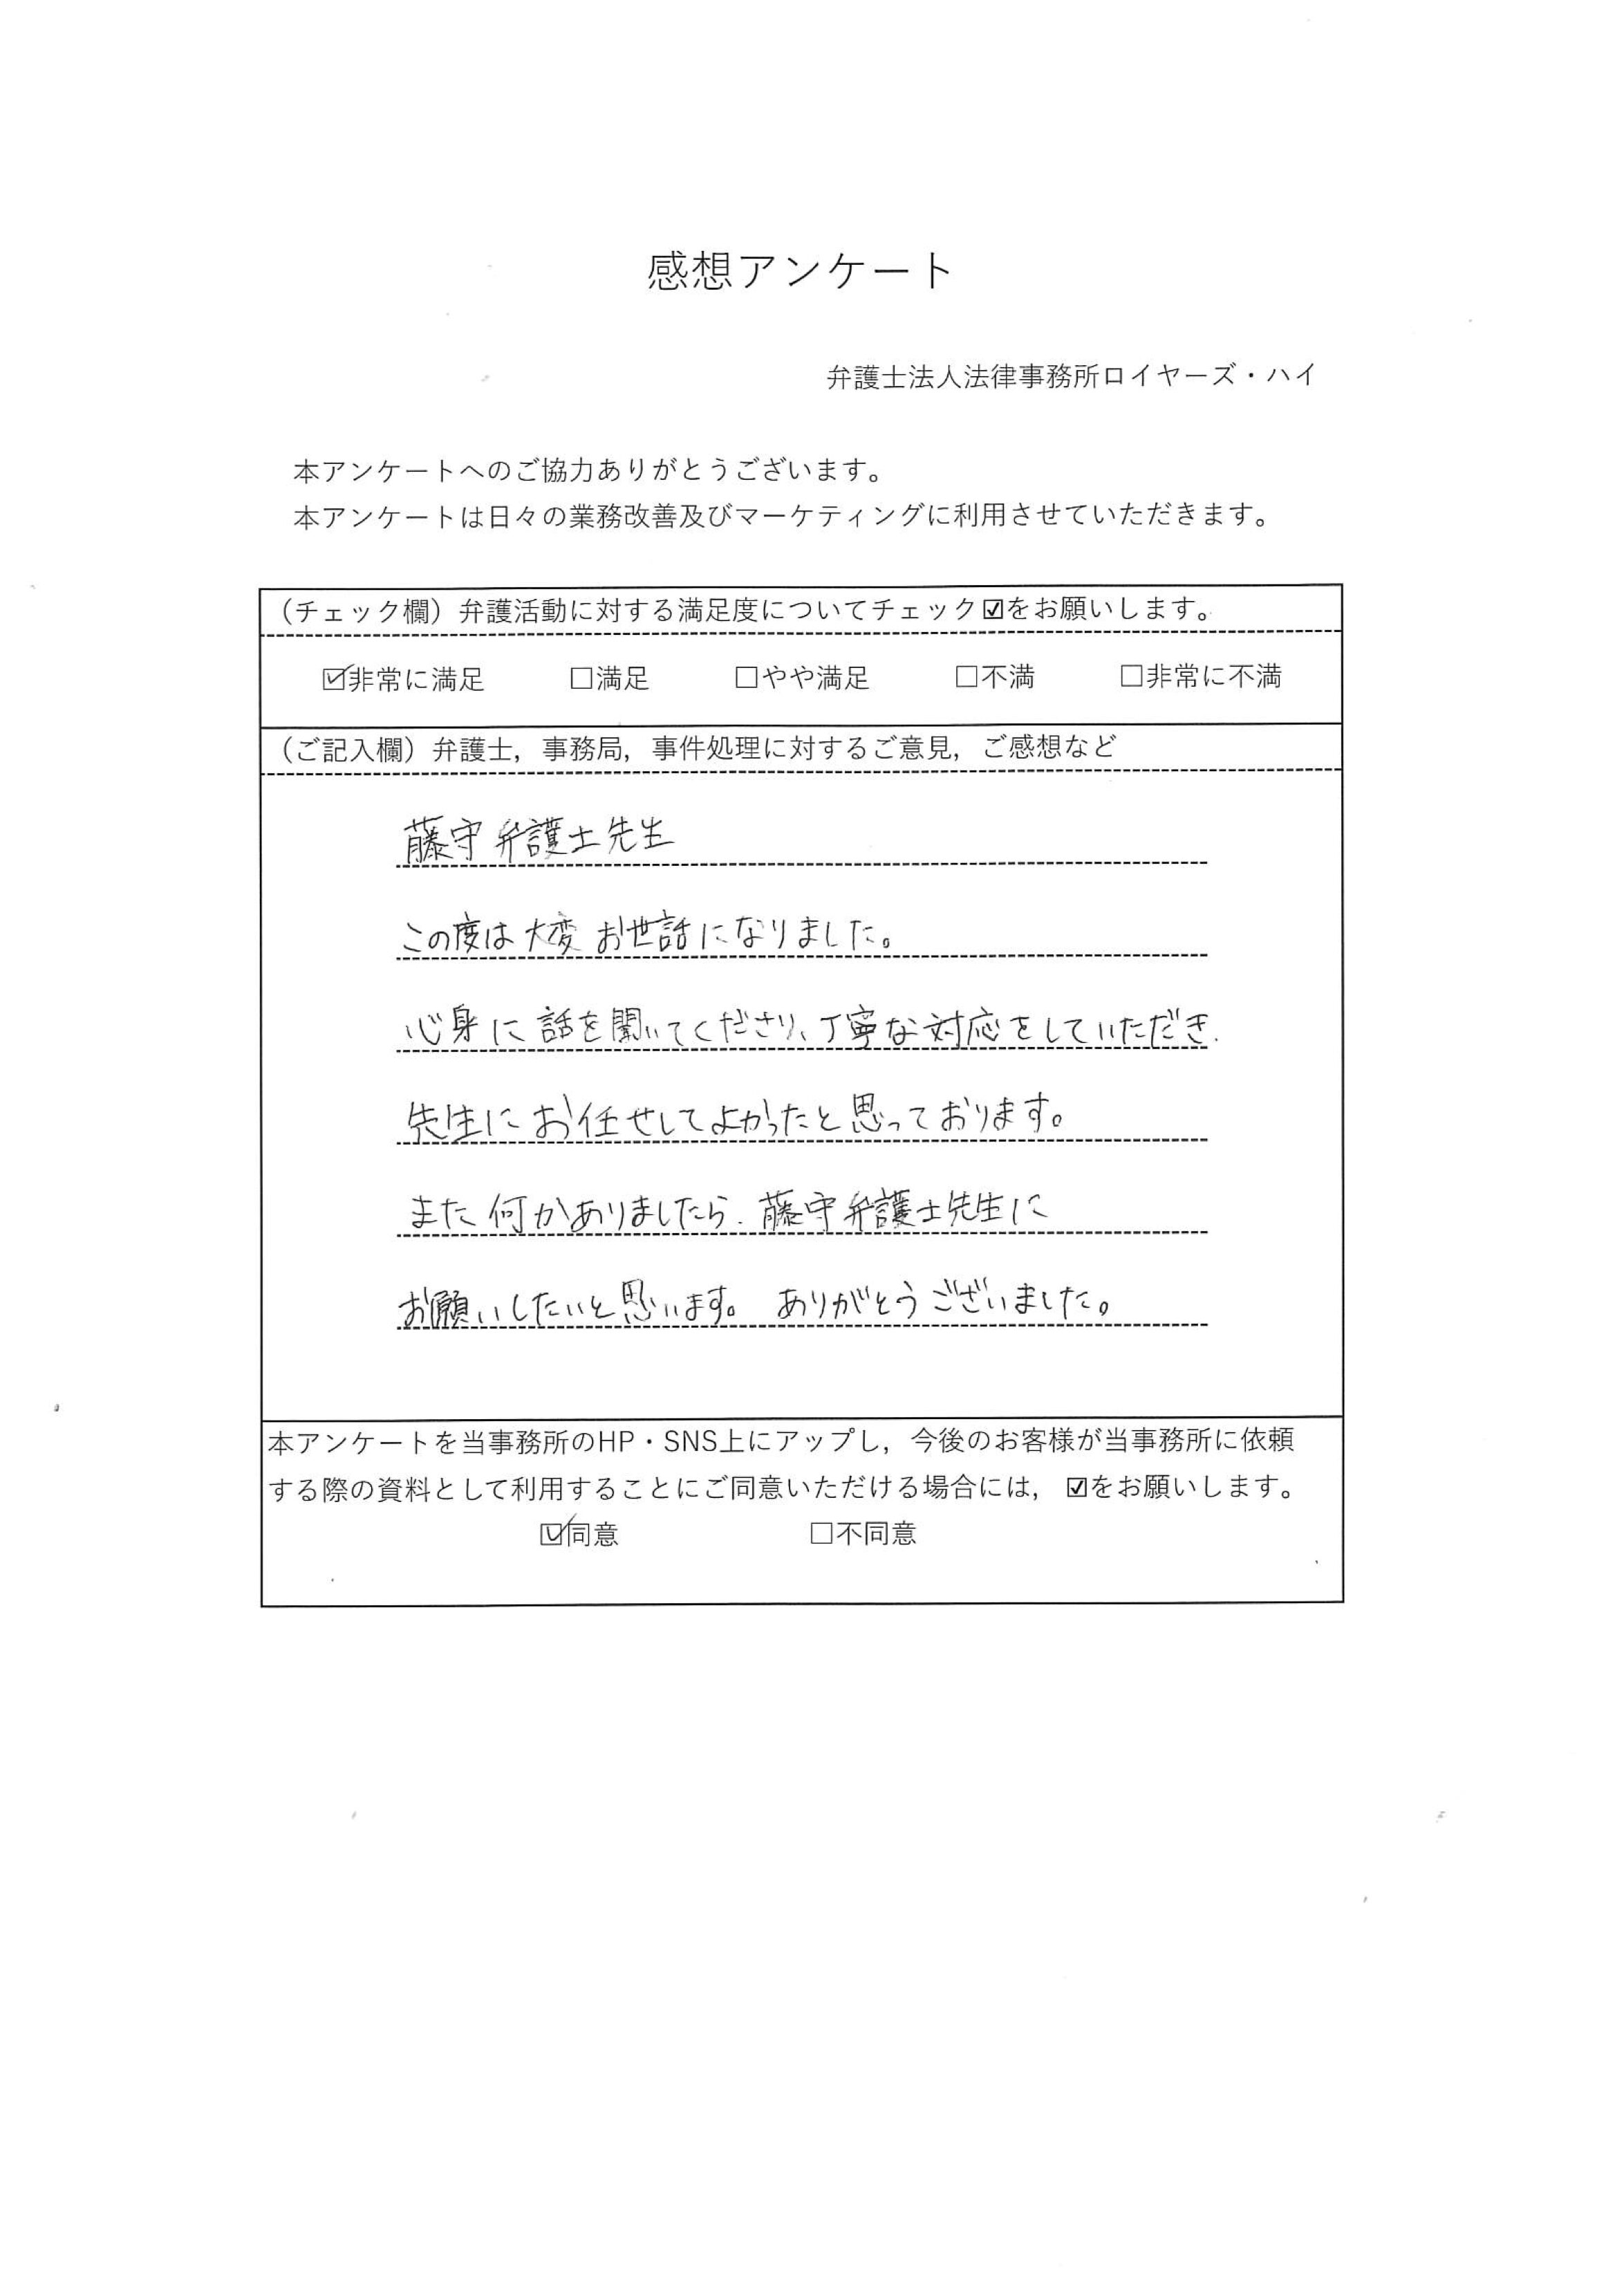 感想アンケート
弁護士法人法律事務所ロイヤーズ・ハイ
本アンケートへのご協力ありがとうございます。
本アンケートは日々の業務改善及びマーケティングに利用させていただきます。
（チェック欄）弁護活動に対する満足度についてチェック☑をお願いします。
☑非常に満足 □満足 □やや満足 □不満 □非常に不満
（ご記入欄）弁護士，事務局，事件処理に対するご意見，ご感想など
藤守弁護士先生
この度は大変お世話になりました。
心身に話を聞いてくださり、丁寧な対応をしていただき、
先生にお任せしてよかったと思っております。
また何かありましたら、藤守弁護士先生に
お願いしたいと思います。ありがとうございました。
本アンケートを当事務所のHP・SNS上にアップし，今後のお客様が当事務所に依頼
する際の資料として利用することにご同意いただける場合には，☑をお願いします。
☑同意 □不同意